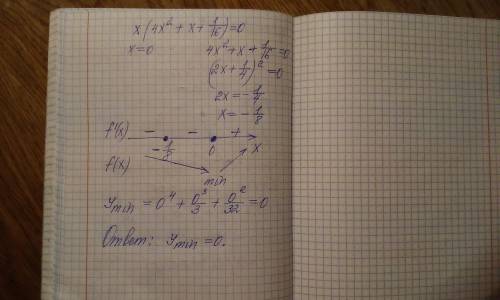 x(4x² + x + 1/16) = 0
x = 0    4x² + x + 1/16 = 0
(2x + 1/4)² = 0
2x = -1/4
x = -1/8
f'(x)  -  -  +
-1/8  0  x
f(x)
min
y min = 0⁴ + 0³/3 + 0²/32 = 0
Ответ: y min = 0.